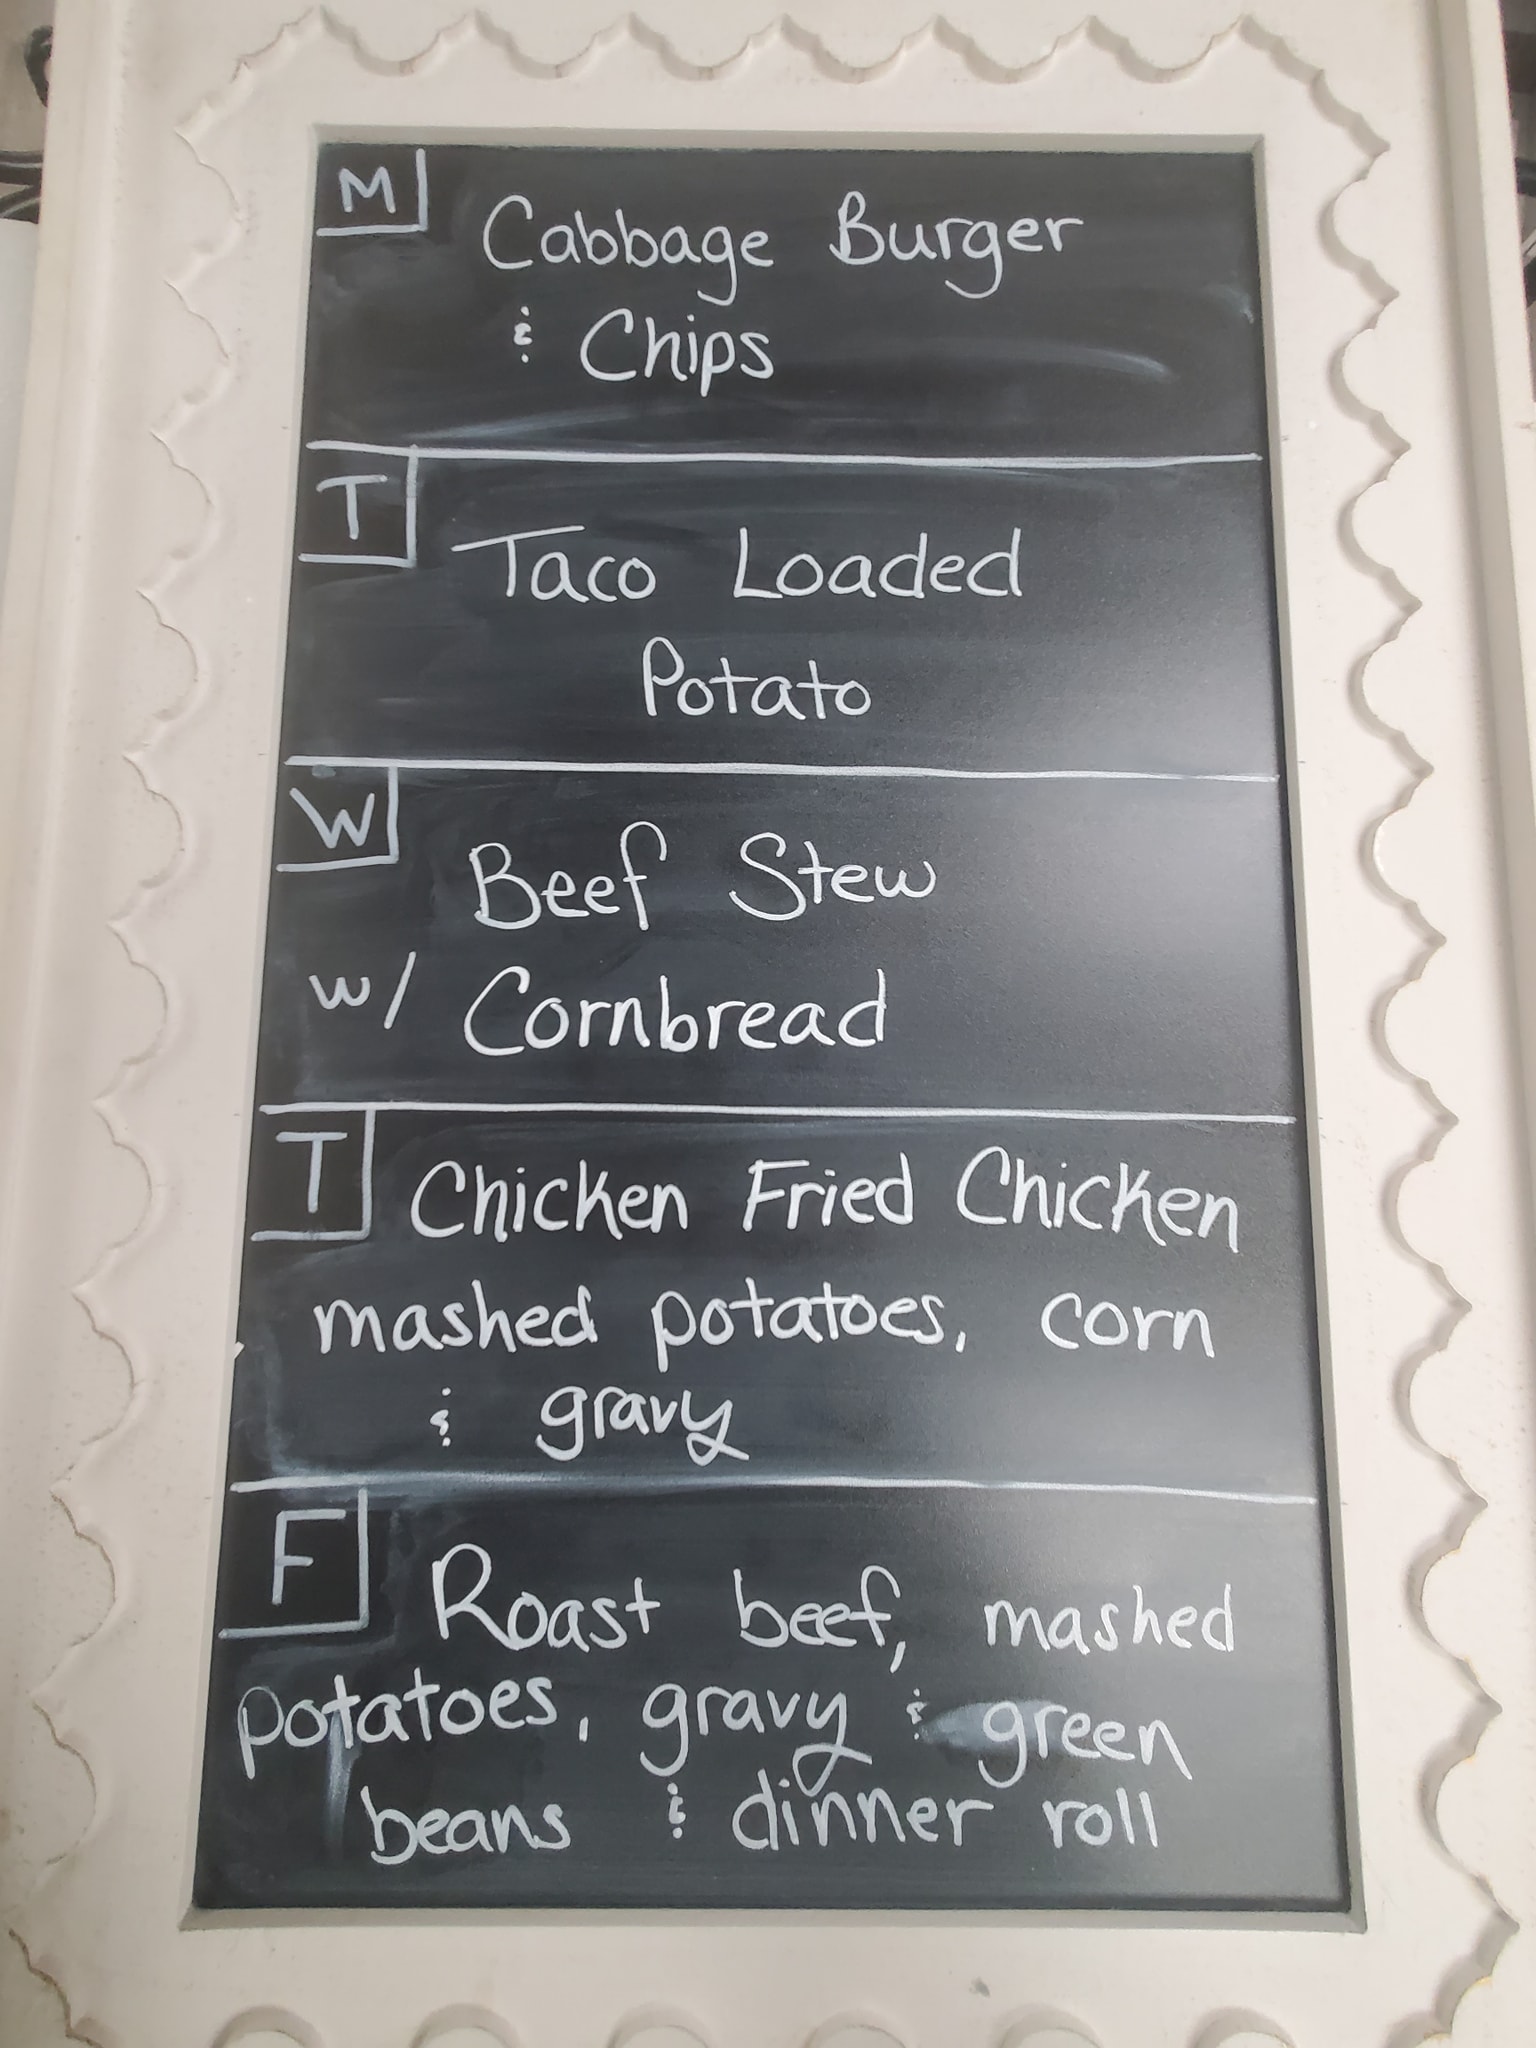 M
Cabbage Burger
& Chips
T
Taco Loaded
Potato
W
Beef Stew
w/ Cornbread
T
Chicken Fried Chicken
mashed potatoes, corn
& gravy
F
Roast beef, mashed
potatoes, gravy & green
beans & dinner roll